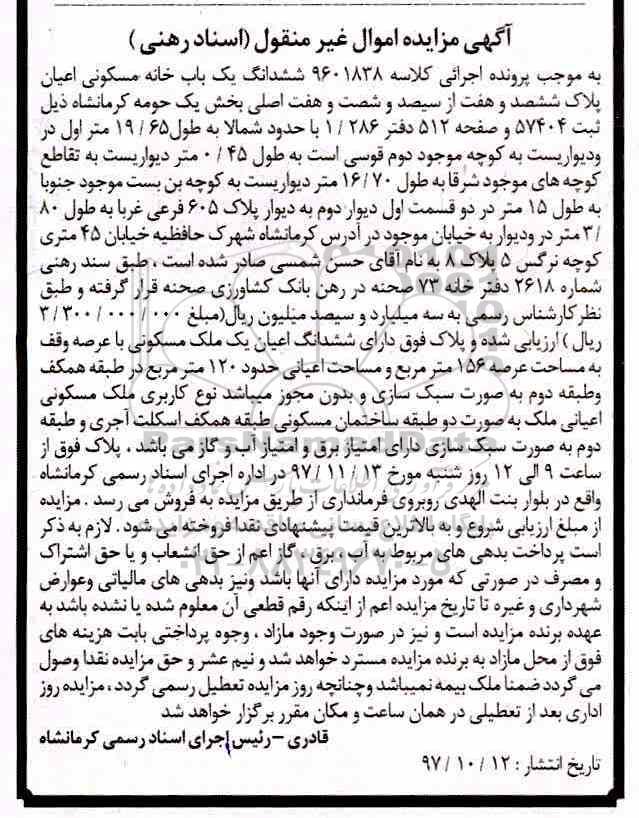 آگهی مزایده اموال غیر منقول (اسناد رهنی)
به موجب پرونده اجرائی کلاسه ۹۶۰۱۸۳۸ ششدانگ یک باب خانه مسکونی اعیان
پلاک ششصد و هفت از سیصد و شصت و هفت اصلی بخش یک حومه کرمانشاه ذیل
ثبت ۵۷۴۰۴ و صفحه ۵۱۲ دفتر ۲۸۶ / ۱ با حدود شمالا به طول ۶۵ / ۱۹ متر اول در
ودیواریست به کوچه موجود دوم قوسی است به طول ۴۵ / ۰ متر دیواریست به تقاطع
کوچه های موجود شرقا به طول ۷۰ / ۱۶ متر دیواریست به کوچه بن بست موجود جنوبا
به طول ۱۵ متر در دو قسمت اول دیوار دوم به دیوار پلاک ۶۰۵ فرعی غربا به طول ۸۰
/ ۳ متر در ودیوار به خیابان موجود در آدرس کرمانشاه شهرک حافظیه خیابان ۴۵ متری
کوچه نرگس ۵ پلاک ۸ به نام آقای حسن شمسی صادر شده است ، طبق سند رهنی
شماره ۲۶۱۸ دفتر خانه ۷۳ صحنه در رهن بانک کشاورزی صحنه قرار گرفته و طبق
نظر کارشناس رسمی به سه میلیارد و سیصد میلیون ریال (مبلغ ۰۰۰ / ۰۰۰ / ۳۰۰ / ۳
ریال ) ارزیابی شده و پلاک فوق دارای ششدانگ اعیان یک ملک مسکونی با عرصه وقف
به مساحت عرصه ۱۵۶ متر مربع و مساحت اعیانی حدود ۱۲۰ متر مربع در طبقه همکف
وطبقه دوم به صورت سبک سازی و بدون مجوز میباشد نوع کاربری ملک مسکونی
اعیانی ملک به صورت دو طبقه ساختمان مسکونی طبقه همکف اسکلت آجری و طبقه
دوم به صورت سبک سازی دارای امتیاز برق و امتیاز آب و گاز می باشد . پلاک فوق از
ساعت ۹ الی ۱۲ روز شنبه مورخ ۱۳ / ۱۱ / ۹۷ در اداره اجرای اسناد رسمی کرمانشاه
واقع در بلوار بنت الهدی روبروی فرمانداری از طریق مزایده به فروش می رسد . مزایده
از مبلغ ارزیابی شروع و به بالاترین قیمت پیشنهادی نقدا فروخته می شود . لازم به ذکر
است پرداخت بدهی های مربوط به آب ، برق ، گاز اعم از حق انشعاب و یا حق اشتراک
و مصرف در صورتی که مورد مزایده دارای آنها باشد ونیز بدهی های مالیاتی وعوارض
شهرداری و غیره تا تاریخ مزایده اعم از اینکه رقم قطعی آن معلوم شده یا نشده باشد به
عهده برنده مزایده است و نیز در صورت وجود مازاد ، وجوه پرداختی بابت هزینه های
فوق از محل مازاد به برنده مزایده مسترد خواهد شد و نیم عشر و حق مزایده نقدا وصول
می گردد ضمنا ملک بیمه نمیباشد وچنانچه روز مزایده تعطیل رسمی گردد ، مزایده روز
اداری بعد از تعطیلی در همان ساعت و مکان مقرر برگزار خواهد شد
قادری – رئیس اجرای اسناد رسمی کرمانشاه
تاریخ انتشار : ۱۲ / ۱۰ / ۹۷